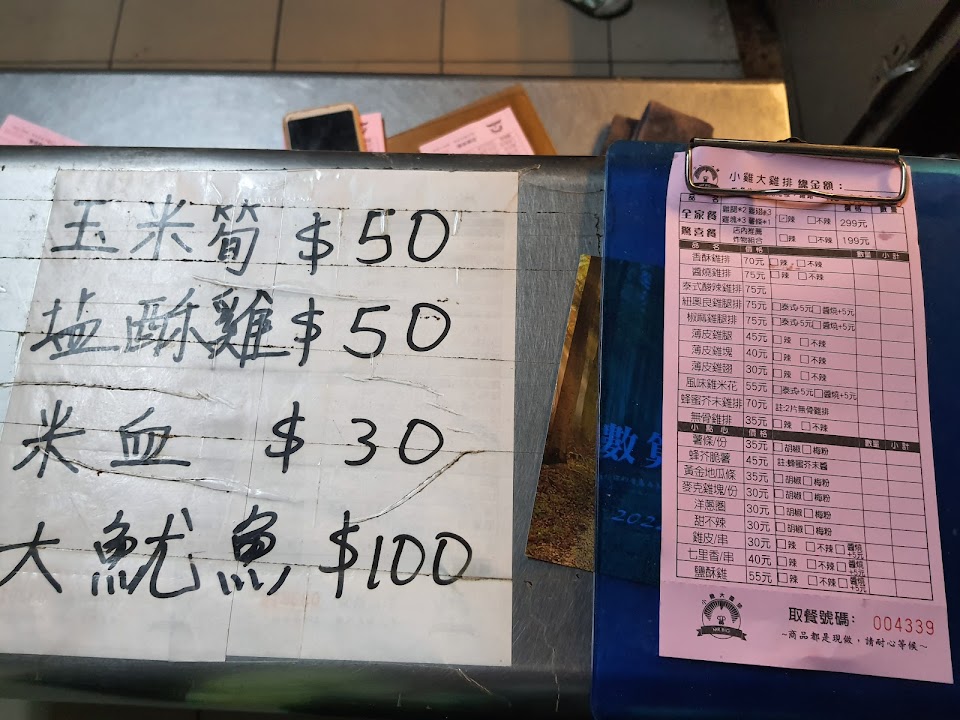 玉米筍 $50
塩酥雞 $50
米血 $30
大魷魚 $100
數
202
小雞大雞排 總金額：
品名 價格 數量
全家餐 雞腿*2 雞翅*3 雞塊*3 薯條*1 辣 不辣 299元
驚喜餐 店內推薦 炸物組合 辣 不辣 199元
品名 價格 數量 小計
香酥雞排 70元 辣 不辣
醬燒雞排 75元 辣 不辣
泰式酸辣雞排 75元
紐奧良雞腿排 75元 泰式+5元 醬燒+5元
椒麻雞腿排 75元 泰式+5元 醬燒+5元
薄皮雞腿 45元 辣 不辣
薄皮雞塊 40元 辣 不辣
薄皮雞翅 30元 辣 不辣
風味雞米花 55元 泰式+5元 醬燒+5元
蜂蜜芥末雞排 70元 註:2片無骨雞排
無骨雞排 35元 辣 不辣
小點心 價格 數量 小計
薯條/份 35元 胡椒 梅粉
蜂芥脆薯 45元 註:蜂蜜芥末醬
黃金地瓜條 35元 胡椒 梅粉
麥克雞塊/份 30元 胡椒 梅粉
洋蔥圈 30元 胡椒 梅粉
甜不辣 30元 胡椒 梅粉
雞皮/串 30元 辣 不辣 醬燒+5元
七里香/串 40元 辣 不辣 醬燒+5元
鹽酥雞 55元 辣 不辣 醬燒+5元
小雞大雞排
取餐號碼: 004339
~商品都是現做，請耐心等候~